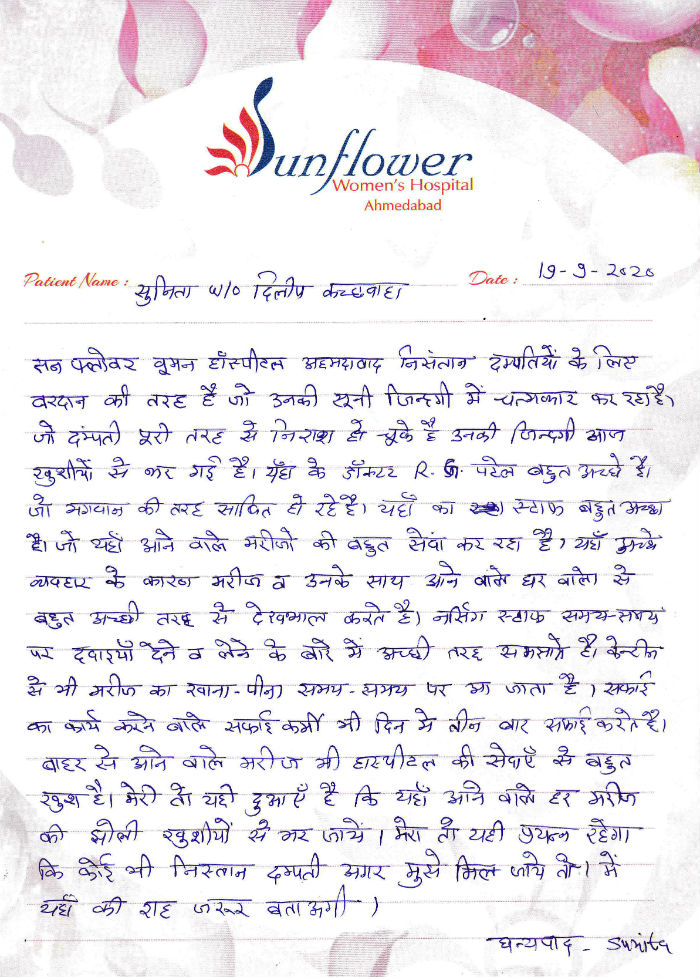 Sunflower
Women's Hospital
Ahmedabad
Patient Name : सुनिता w/o दिलीप कच्छवाहा Date : 19-9-2020
सन फ्लोवर वूमन हॉस्पीटल अहमदाबाद निसंतान दम्पतियों के लिए
वरदान की तरह है जो उनकी सूनी जिन्दगी में चत्मकार कर रहा है।
जो दंम्पती पूरी तरह से निराश हो चूके है उनकी जिन्दगी आज
खुशीयों से भर गई है। यहाँ के डॉक्टर R. G. पटेल बहुत अच्छे है।
जो भगवान की तरह साबित हो रहे है। यहाँ का स्टाफ बहुत अच्छा
है। जो यहाँ आने वाले मरीजो की बहुत सेवा कर रहा है, यहाँ अच्छे
व्यवहार के कारण मरीज व उनके साथ आने वाले घर वालो से
बहुत अच्छी तरह से देखभाल करते है। नर्सिग स्टाफ समय-समय
पर दवाइयाँ देने व लेने के बारे में अच्छी तरह समझाते है। केन्टीन
से भी मरीज का खाना-पीना समय-समय पर आ जाता है। सफाई
का कार्य करने वाले सफाई कर्मी भी दिन मे तीन बार सफाई करते है।
बाहर से आने वाले मरीज भी हास्पीटल की सेवाएँ से बहुत
खुश है। मेरी तो यही दुआएँ है कि यहाँ आने वाले हर मरीज
की झोली खुशीयों से भर जाये। मेरा तो यही प्रयत्न रहेगा
कि कोई भी निस्तान दम्पती अगर मुझे मिल जाये तो। में
यहाँ की राह जरूर बताऊगी।
धन्यवाद - Sunita